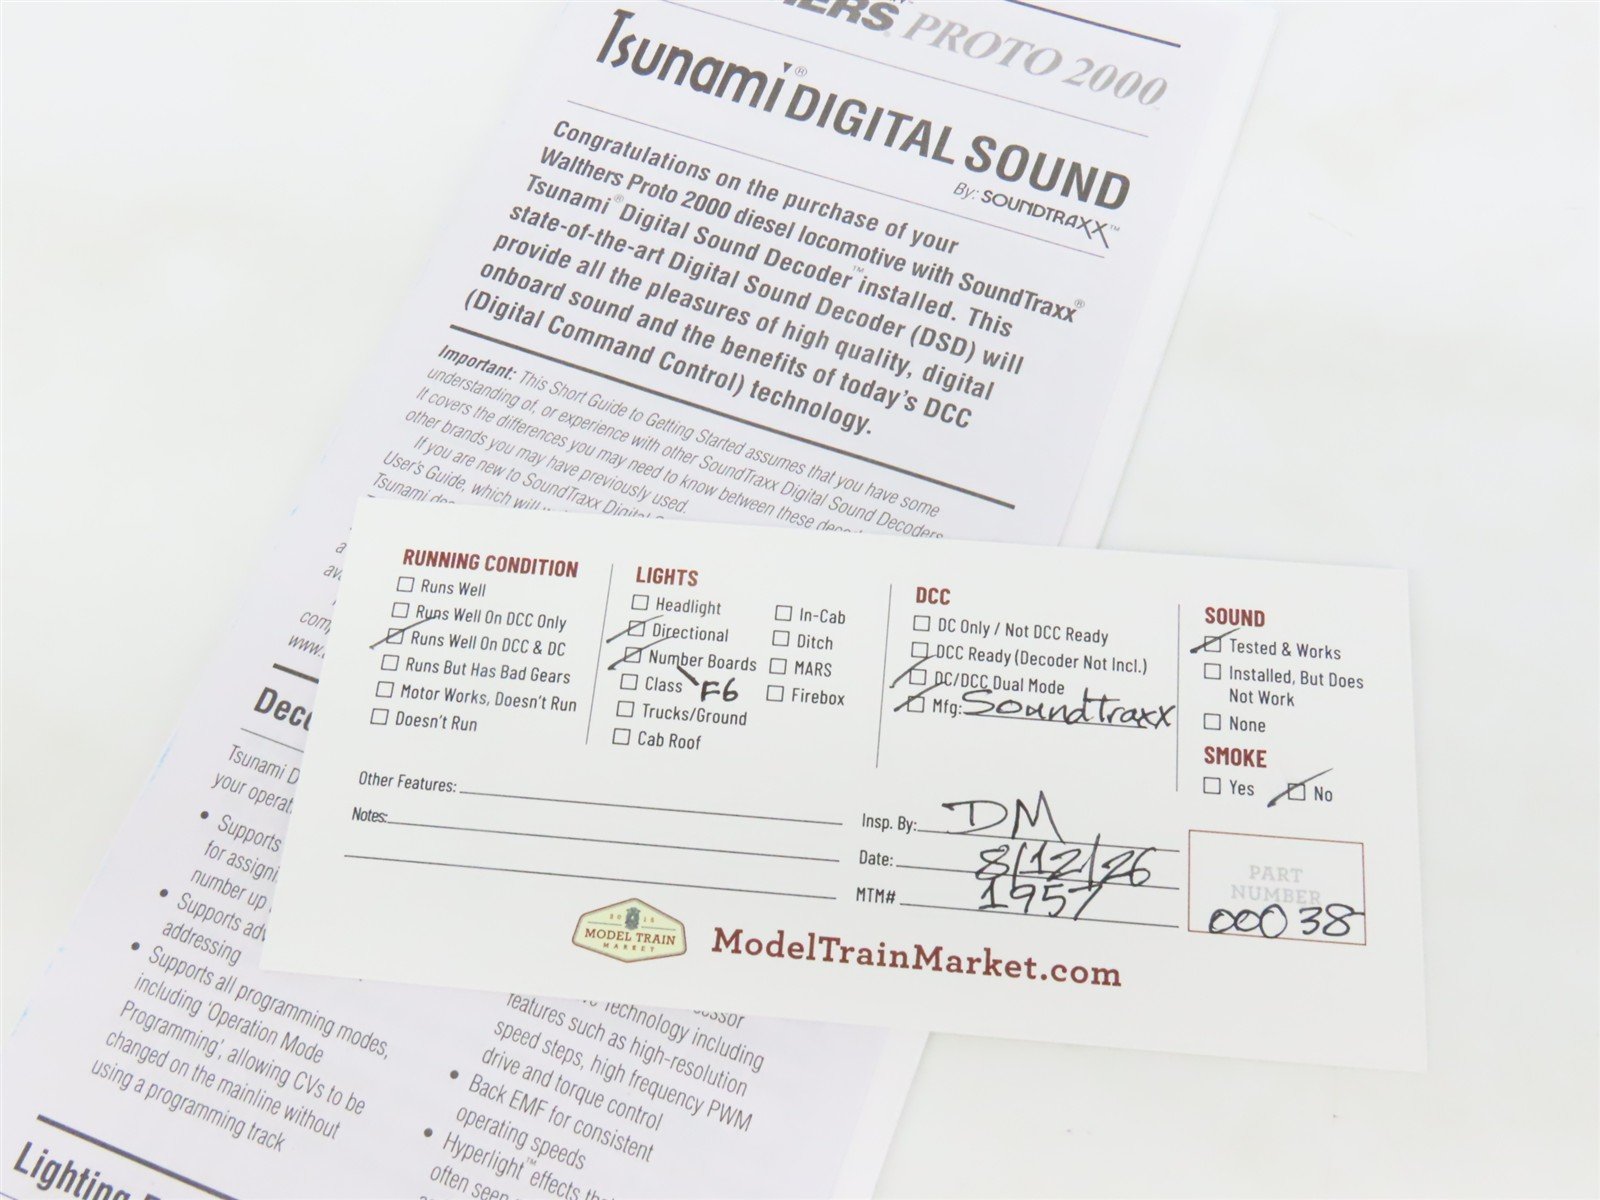 HERS PROTO 2000
Tsunami® DIGITAL SOUND
By: SOUNDTRAXX™
Congratulations on the purchase of your
Walthers Proto 2000 diesel locomotive with SoundTraxx®
Tsunami® Digital Sound Decoder™ installed. This
state-of-the-art Digital Sound Decoder (DSD) will
provide all the pleasures of high quality, digital
onboard sound and the benefits of today's DCC
(Digital Command Control) technology.
Important: This Short Guide to Getting Started assumes that you have some
understanding of, or experience with other SoundTraxx Digital Sound Decoders
It covers the differences you may need to know between these
other brands you may have previously used.
If you are new to SoundTraxx Digital
User's Guide, which will
Tsunami
www.
RUNNING CONDITION
Runs Well
Runs Well On DCC Only
Runs Well On DCC & DC
Runs But Has Bad Gears
Motor Works, Doesn't Run
Doesn't Run
LIGHTS
Headlight
Directional
Number Boards
Class F6
Trucks/Ground
Cab Roof
In-Cab
Ditch
MARS
Firebox
DCC
DC Only / Not DCC Ready
DCC Ready (Decoder Not Incl.)
DC/DCC Dual Mode
Mfg: Soundtraxx
SOUND
Tested & Works
Installed, But Does
Not Work
None
SMOKE
Yes No
Other Features:
Notes:
Insp. By: DM
Date: 8/12/26
MTM# 1957
PART
NUMBER
00038
2015
MODEL TRAIN
MARKET
ModelTrainMarket.com
Tsunami D
your operat
• Supports
for assigni
number up
• Supports adv
addressing
• Supports all programming modes,
including 'Operation Mode
Programming', allowing CVs to be
changed on the mainline without
using a programming track
Technology including
features such as high-resolution
speed steps, high frequency PWM
drive and torque control
• Back EMF for consistent
operating speeds
• Hyperlight™ effects
often seen
Lighting